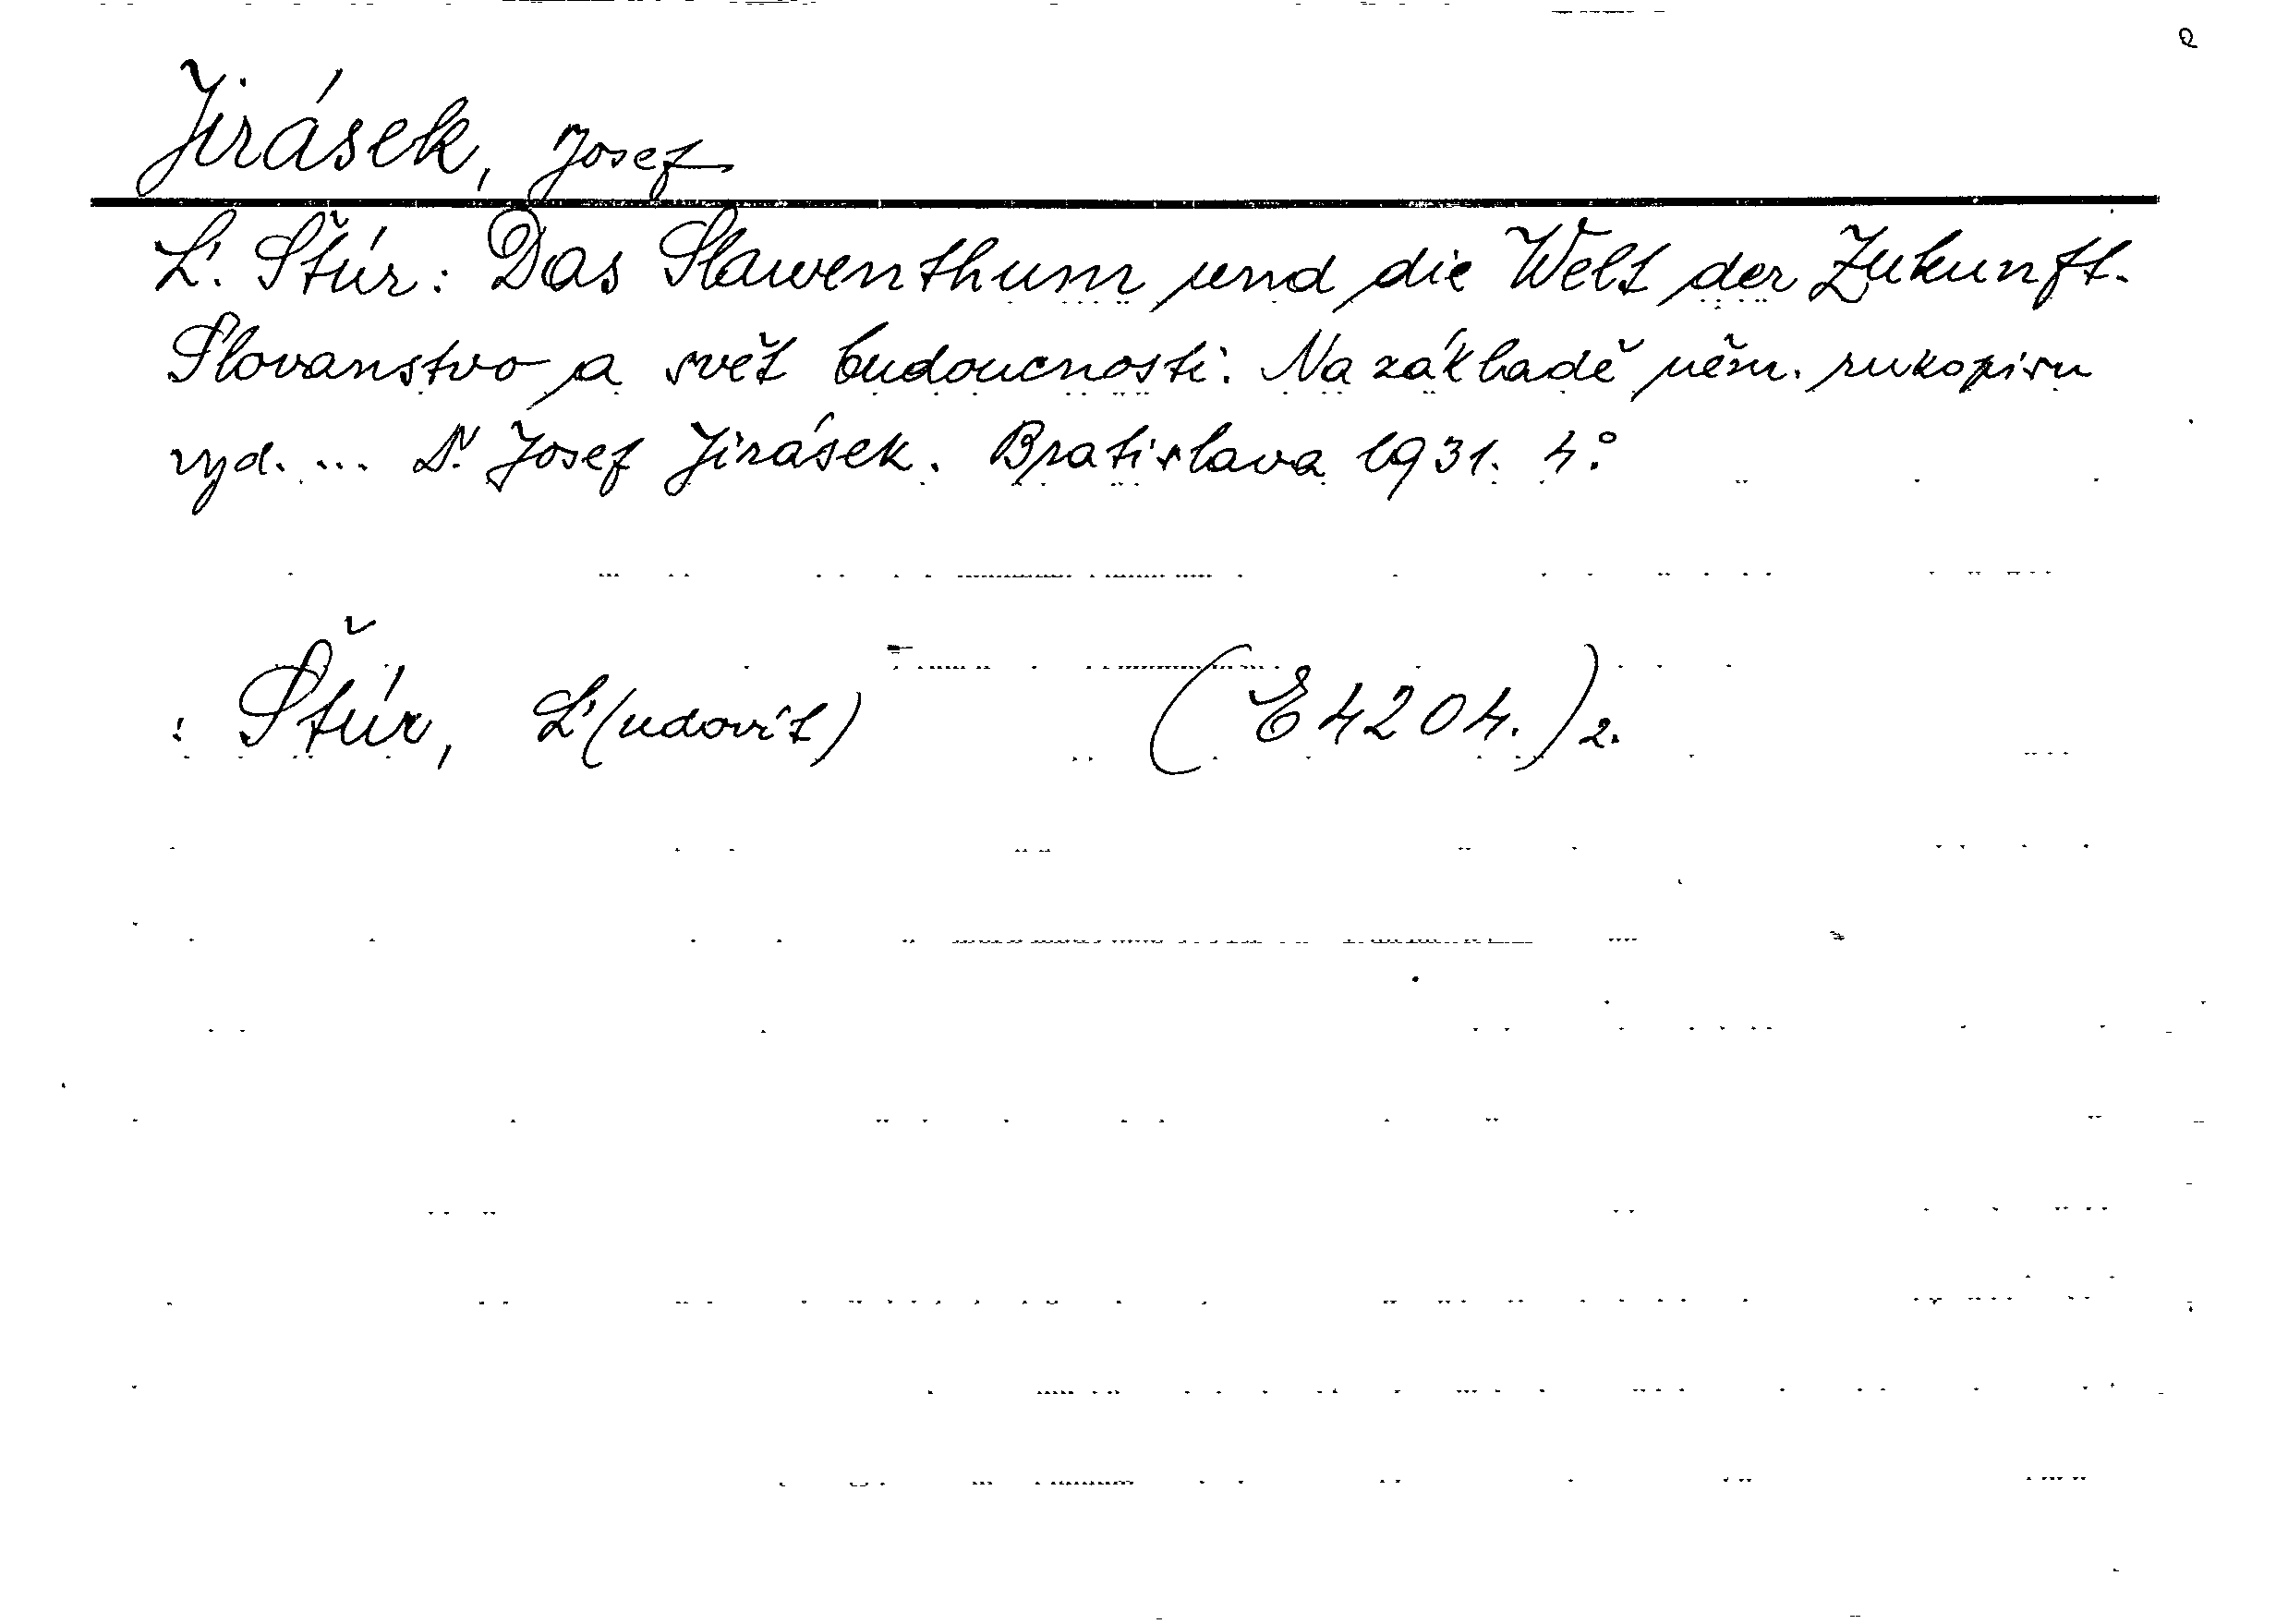 Jirásek, Josef
L'. Štúr: Das Slawenthum und die Welt der Zukunft.
Slovanstvo a svět budoucnosti. Na základě něm. rukopisu
vyd. ... Dr. Josef Jirásek. Bratislava 1931. 4°.
: Štúr, L'(udovít) (E 4204.) 2.